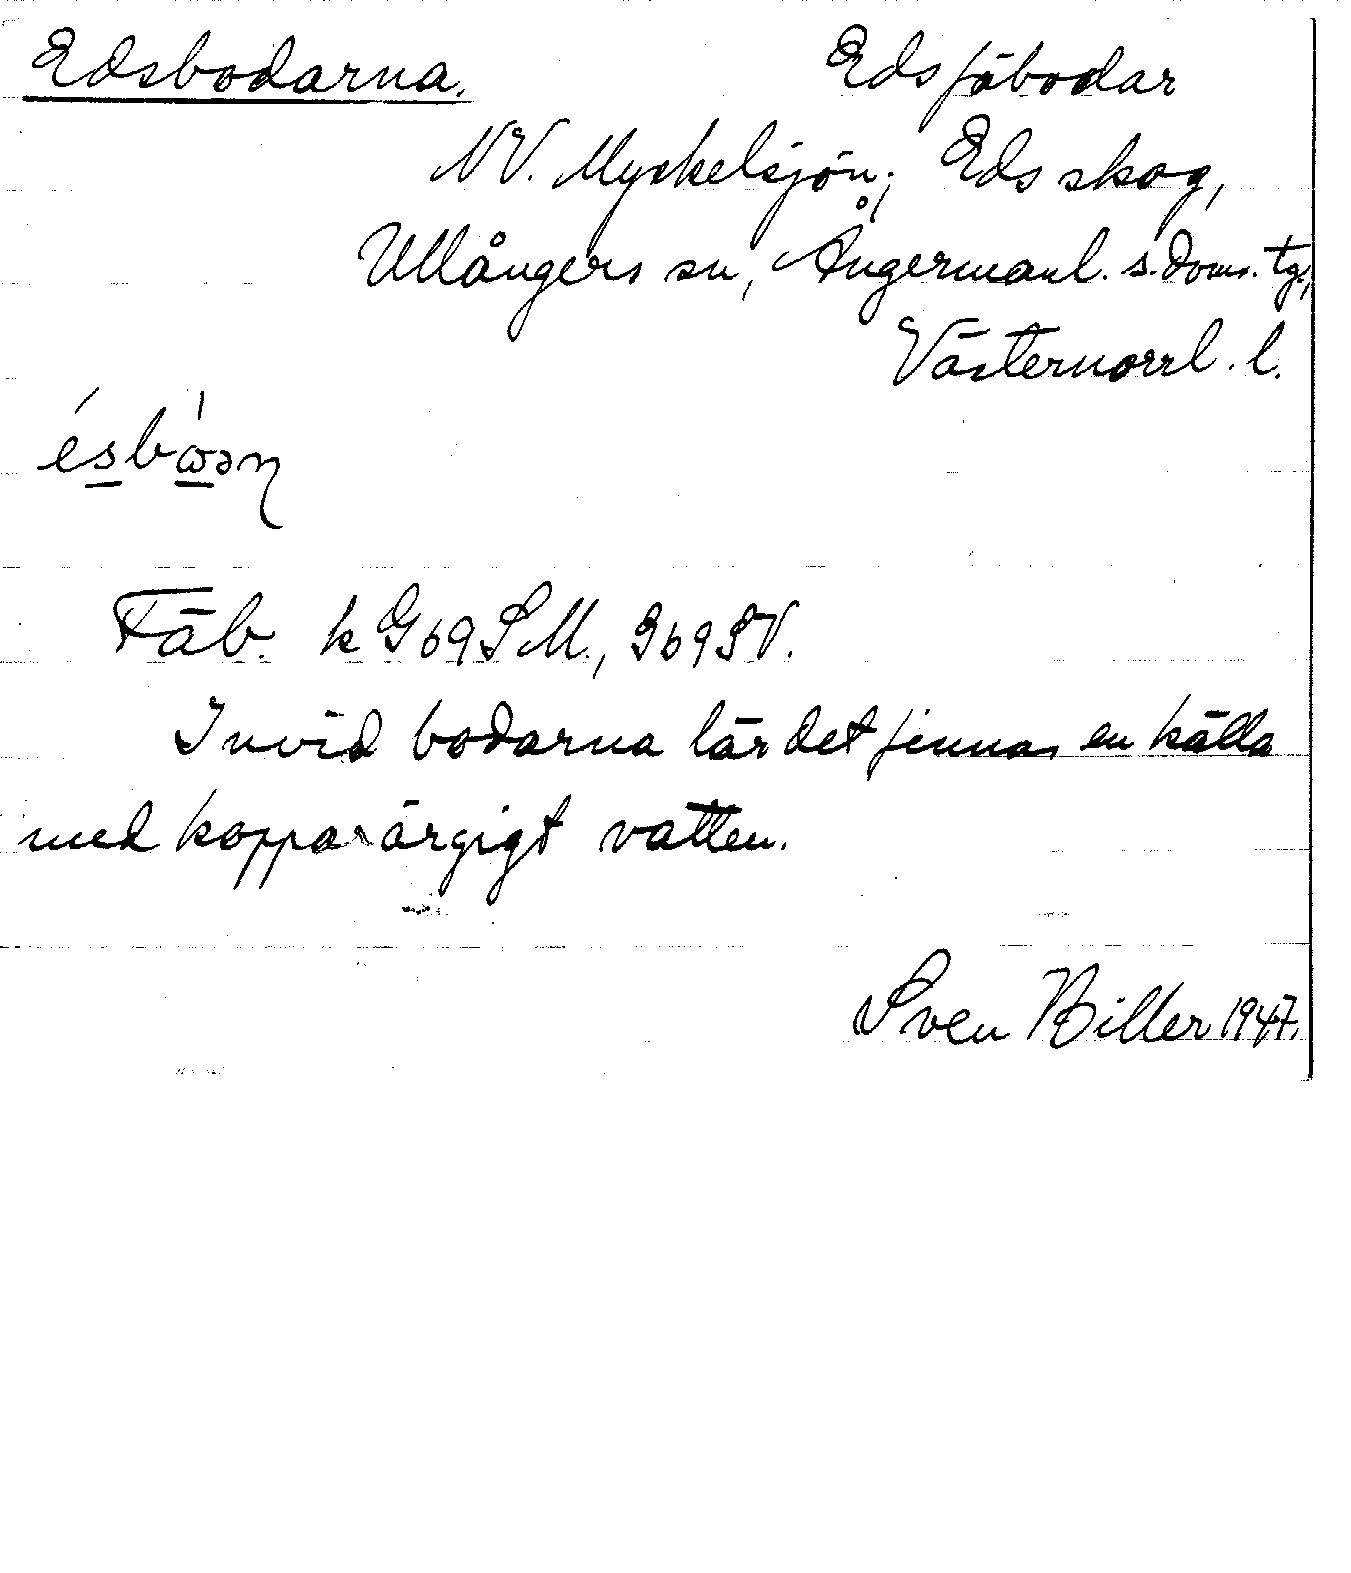 Edsbodarna. Eds fäbodar
NV. Myckelsjön; Eds skog,
Ullångers sn, Ångermanl. s. doms. tg.,
Västernorrl. l.
Fäb. k G69SM, G69SV.
Invid bodarna lär det finnas en källa
med kopparärgigt vatten.
Sven Biller 1947.